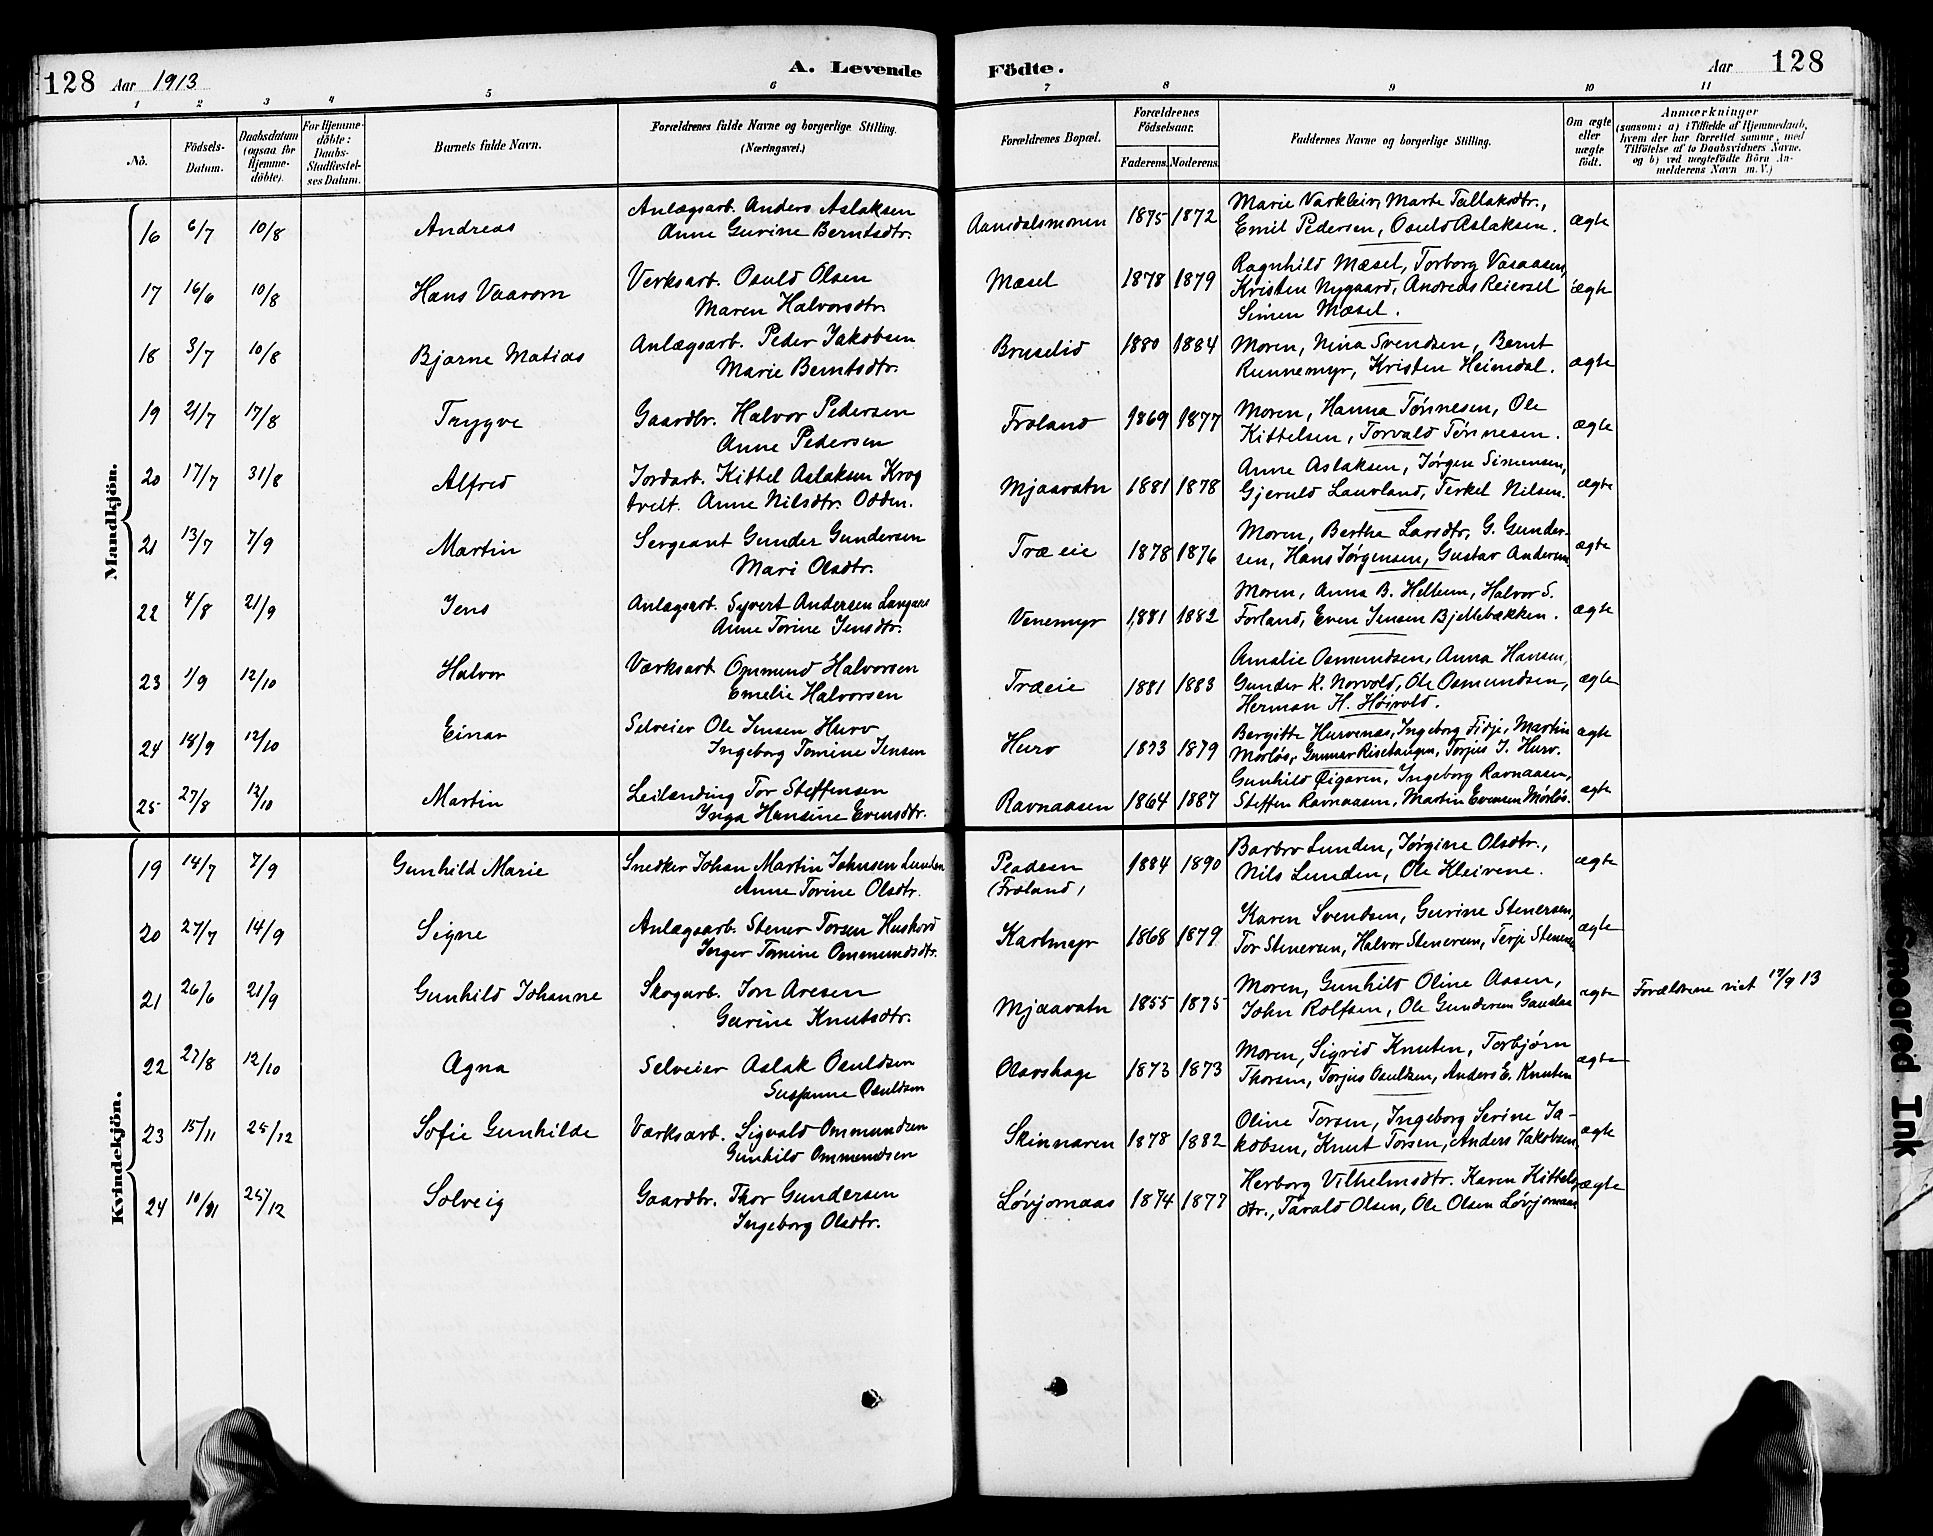 128 Aar 1913
A. Levende Födte.
Aar 128
1 2 3 4 5 6 7 8 9 10 11
No.
Födsels-Datum.
Daabsdatum (ogsaa for Hjemme-döbte).
For Hjemme-döbte: Daabs-Stadfæstel-ses Datum.
Barnets fulde Navn.
Forældrenes fulde Navne og borgerlige Stilling. (Næringsvei.)
Forældrenes Bopæl.
Forældrenes Födselsaar.
Faderens. Moderens.
Faddernes Navne og borgerlige Stilling.
Om ægte eller uægte födt.
Anmærkninger
(saasom: a) i Tilfælde af Hjemmedaab, hvem der har forrettet samme, med Tilföielse af to Daabsvidners Navne, og b) ved uægtefödte Börn An-melderens Navn m. V.)
Mandkjön.
16 6/7 10/8 Andreas Anlægsarb. Anders Aslaksen Aamdalsmonen 1875 1872 Marie Varkleiv, Marte Tallaksdtr.,
Anne Gurine Berntsdtr. Emil Pedersen, Osuld Aslaksen. ægte
17 16/6 10/8 Hans Vaarom Verksarb. Osuld Olsen Mæsel 1878 1879 Ragnhild Mæsel, Torborg Vasaasen,
Maren Halvorsdtr. Kristen Nygaard, Andreas Reiersel ægte
Simen Mæsel.
18 3/7 10/8 Bjarne Matias Anlægsarb. Peder Jakobsen Bruselid 1880 1884 Moren, Nina Svendsen, Bernt
Marie Berntsdtr. Runnemyr, Kristen Heimdal. ægte
19 21/7 17/8 Trygve Gaardbr. Halvor Pedersen Froland 1869 1877 Moren, Hanna Tønnesen, Ole
Anne Pedersen Kittelsen, Torvald Tønnesen. ægte
20 17/7 31/8 Alfred Jordarb. Kittel Aslaksen Krog Mjaavatn 1881 1878 Anne Aslaksen, Jørgen Simensen,
tveit. Anne Nilsdtr. Odden. Gjeruld Lauvland, Terkel Nilsen. ægte
21 13/7 7/9 Martin Sergeant Gunder Gundersen Træeie 1878 1876 Moren, Berthe Larsdtr, G. Gunder-
Mari Olsdtr. sen, Hans Jørgensen, Gustav Andersen ægte
22 4/8 21/9 Jens Anlægsarb. Syvert Andersen Langaas Venemyr 1881 1882 Moren, Anna B. Heltum, Halvor S.
Anne Torine Jensdtr. Forland, Even Jensen Bjellebækken. ægte
23 1/9 12/10 Halvor Værksarb Ommund Halvorsen Træeie 1881 1883 Amalie Osmundsen, Anna Hansen,
Emelie Halvorsen Gunder K. Norvold, Ole Osmundsen, ægte
Herman H. Høivold.
24 18/9 12/10 Einar Selveier Ole Jensen Hurv Hurv 1873 1879 Bergitte Hurvenes, Ingeborg Fidje, Martin
Ingeborg Tomine Jensen Mørløs, Gunnar Risetangen, Torjus J. Hurv. ægte
25 27/8 12/10 Martin Leilænding Tor Steffensen Ravnaasen 1864 1887 Gunhild Øigaren, Ingeborg Ravnaasen,
Inga Hansine Evensdtr. Steffen Ravnaasen, Martin Evensen Mørløs. ægte
Kvindekjön.
19 14/7 7/9 Gunhild Marie Snedker Johan Martin Johnsen Lunden Pladsen 1884 1890 Barbro Lunden, Jørgine Olsdtr.,
Anne Torine Olsdtr. (Froland) Nils Lunden, Ole Kleivene. ægte
20 27/7 14/9 Signe Anlægsarb. Stener Torsen Huskord Kartmyr 1868 1879 Karen Svendsen, Gurine Stenersen,
Inger Tomine Ommundsdtr. Tor Stenersen, Halvor Stenersen, Terje Stenersen ægte
21 26/6 21/9 Gunhild Johanne Skogarb. Jon Aresen Mjaavatn 1855 1875 Moren, Gunhild Oline Aasen,
Gurine Knutsdtr. John Rolfsen, Ole Gundersen ægte Forældrene viet 17/9 13
22 27/8 12/10 Agna Selveier Aslak Osuldsen Olavshage 1873 1873 Moren, Sigrid Knutsen, Torbjørn
Susanne Osuldsen Thorsen, Torjus Osuldsen, Anders E. Knutsen ægte
23 15/11 25/12 Sofie Gunhilde Værksarb. Sigvald Ommundsen Skinnaren 1878 1882 Oline Torsen, Ingeborg Serine Ja-
Gunhild Ommundsen kobsen, Knut Torsen, Anders Jakobsen, ægte
24 10/11 25/12 Solveig Gaardbr. Thor Gundersen Løvjomaas 1874 1877 Herborg Vilhelmsdtr. Karen Kittels
Ingeborg Olsdtr. dtr., Tarald Olsen, Ole Olsen Løvjomaas ægte
Smeared Ink